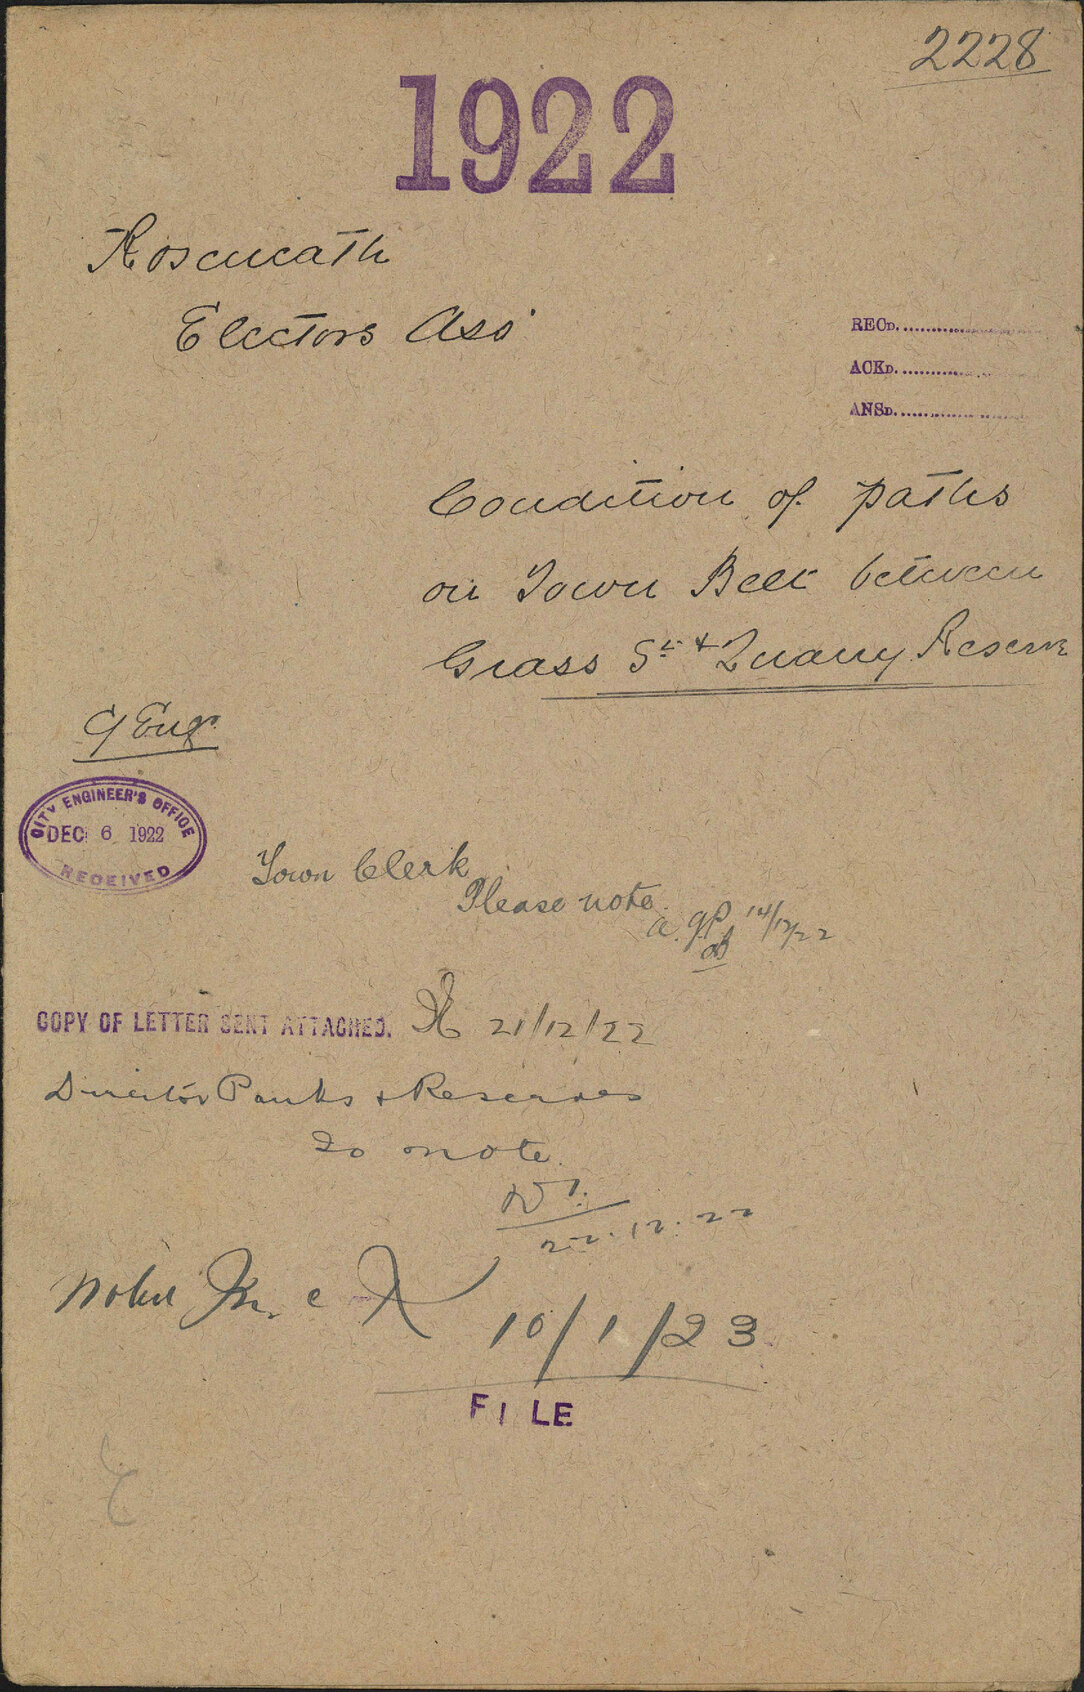 2228
1922
Roseneath
Electors Ass
RECD.
ACKD.
ANSD.
Condition of paths
on Town Belt between
Grass St & Quarry Reserve
C/Engr.
CITY ENGINEER'S OFFICE
DEC 6 1922
RECEIVED
Town Clerk
Please note.
14/12/22
COPY OF LETTER SENT ATTACHED.
21/12/22
Director Parks & Reserves
To note.
22.12.22
Noted
10/1/23
FILE